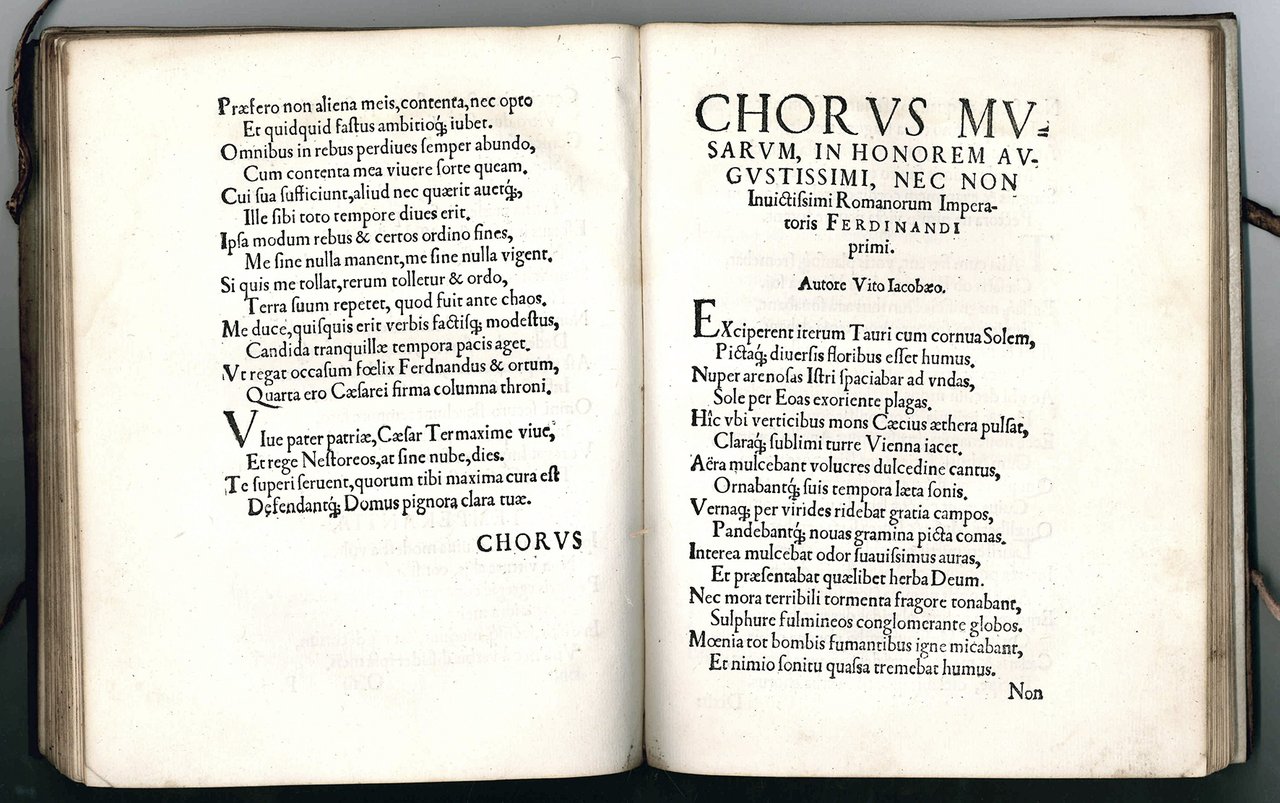 Præfero non aliena meis,contenta,nec opto
Et quidquid faſtus ambitioq́ꝫ iubet.
Omnibus in rebus perdiues ſemper abundo,
Cum contenta mea viuere ſorte queam.
Cui ſua ſufficiunt,aliud nec quærit auetq́ꝫ,
Ille ſibi toto tempore diues erit.
Ipſa modum rebus & certos ordino fines,
Me ſine nulla manent,me ſine nulla vigent.
Si quis me tollat,rerum tolletur & ordo,
Terra ſuum repetet, quod fuit ante chaos.
Me duce,quiſquis erit verbis factiſq́ꝫ modeſtus,
Candida tranquillæ tempora pacis aget.
Vt regat occaſum fœlix Ferdnandus & ortum,
Quarta ero Cæſarei firma columna throni.
VIue pater patriæ,Cæſar Termaxime viue,
Et rege Neſtoreos,at ſine nube,dies.
Te ſuperi ſeruent,quorum tibi maxima cura eſt
Defendantq́ꝫ Domus pignora clara tuæ.
CHORVS
CHORVS MV-
SARVM, IN HONOREM AV-
GVSTISSIMI, NEC NON
Inuictiſsimi Romanorum Impera-
toris FERDINANDI
primi.
Autore Vito Iacobæo.
EXciperent iterum Tauri cum cornua Solem,
Pictaq́ꝫ diuerſis floribus eſſet humus.
Nuper arenoſas Iſtri ſpaciabar ad vndas,
Sole per Eoas exoriente plagas.
Hîc vbi verticibus mons Cæcius æthera pulſat,
Claraq́ꝫ ſublimi turre Vienna iacet.
Aëra mulcebant volucres dulcedine cantus,
Ornabantq́ꝫ ſuis tempora læta ſonis.
Vernaq́ꝫ per virides ridebat gratia campos,
Pandebantq́ꝫ nouas gramina picta comas.
Interea mulcebat odor ſuauiſsimus auras,
Et præſentabat quælibet herba Deum.
Nec mora terribili tormenta fragore tonabant,
Sulphure fulmineos conglomerante globos.
Mœnia tot bombis fumantibus igne micabant,
Et nimio ſonitu quaſſa tremebat humus.
Non